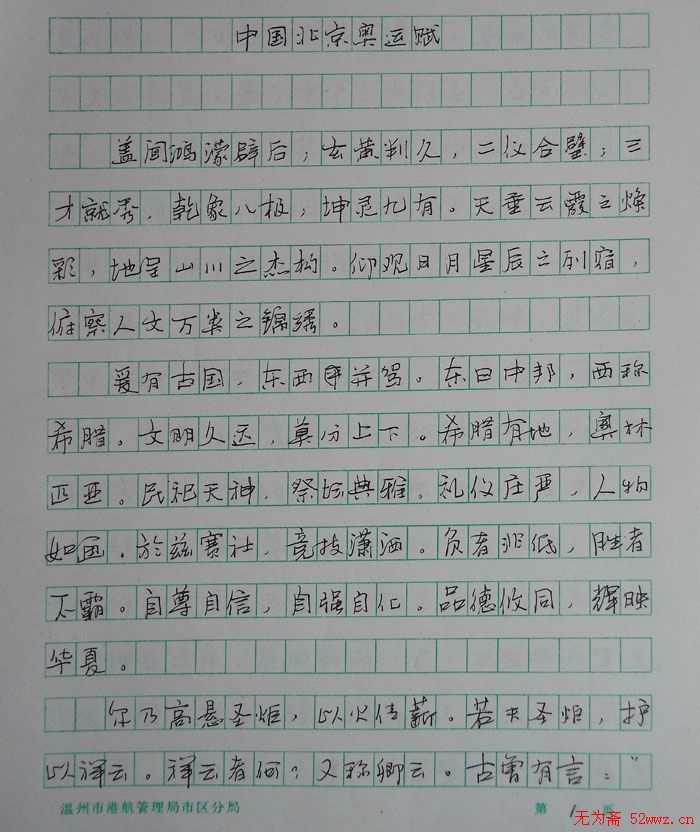 中国北京奥运赋
盖闻鸿濛辟后，玄黄判久，二仪合璧；三
才就秀，乾象八极，坤灵九有。天垂云霞之焕
彩，地呈山川之杰构。仰观日月星辰之列宿，
俯察人文万类之锦绣。
爰有古国，东西并驾。东曰中邦，西称
希腊。文明久远，莫分上下。希腊有地，奥林
匹亚。民祀天神，祭坛典雅。礼仪庄严，人物
如画。於兹赛社，竞技潇洒。负者非低，胜者
不霸。自尊自信，自强自化。品德攸同，辉映
华夏。
尔乃高悬圣炬，以火传薪。若夫圣炬，护
以祥云。祥云者何？又称卿云。古曾有言："
温州市港航管理局市区分局 第 1 页
无为斋 52wwz.cn